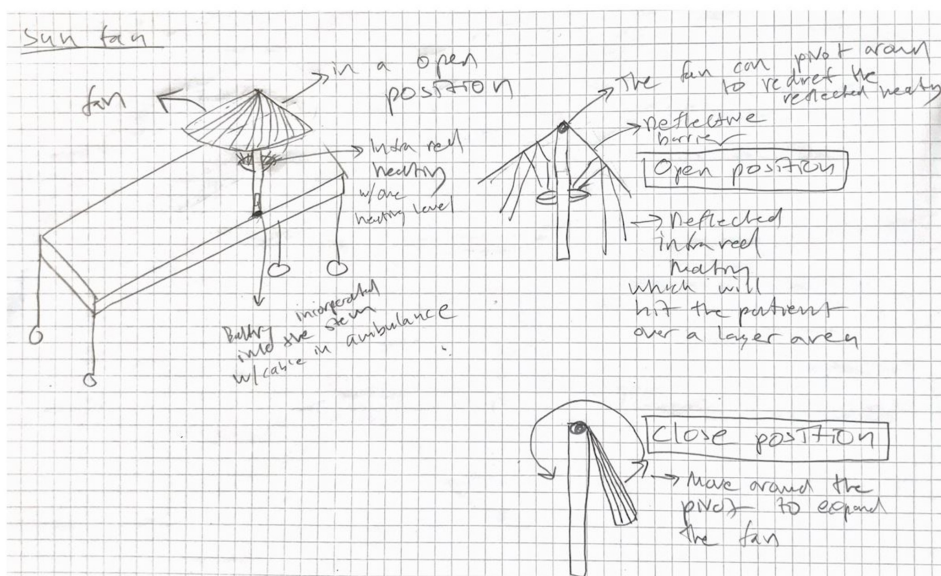 Sun fan
in a open
position
fan
Infra red
heating
w/one
heating level
Battery incorperated
into the stem
w/cable in ambulance
The fan can pivot around
to redirect the
reflected heating
Reflective
barrier
Open position
Deflected
infra red
heating
which will
hit the patient
over a layer area
Close position
Move around the
pivot to expand
the fan